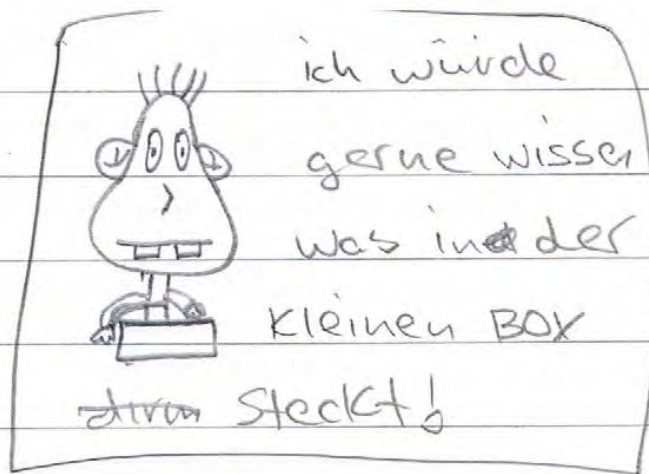 ich würde
gerne wissen
was in der
kleinen BOX
steckt!